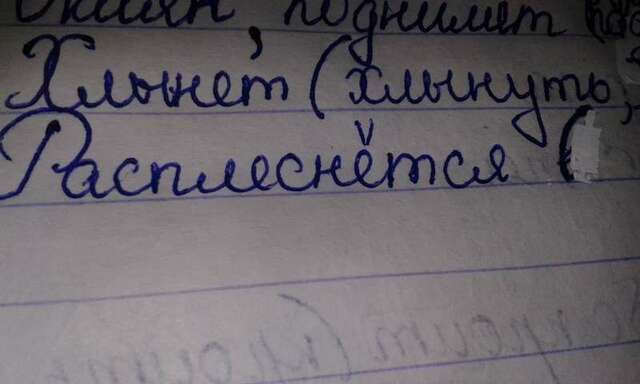 Окиян, поднимет
Хлынет (хлынуть,
Расплеснётся (